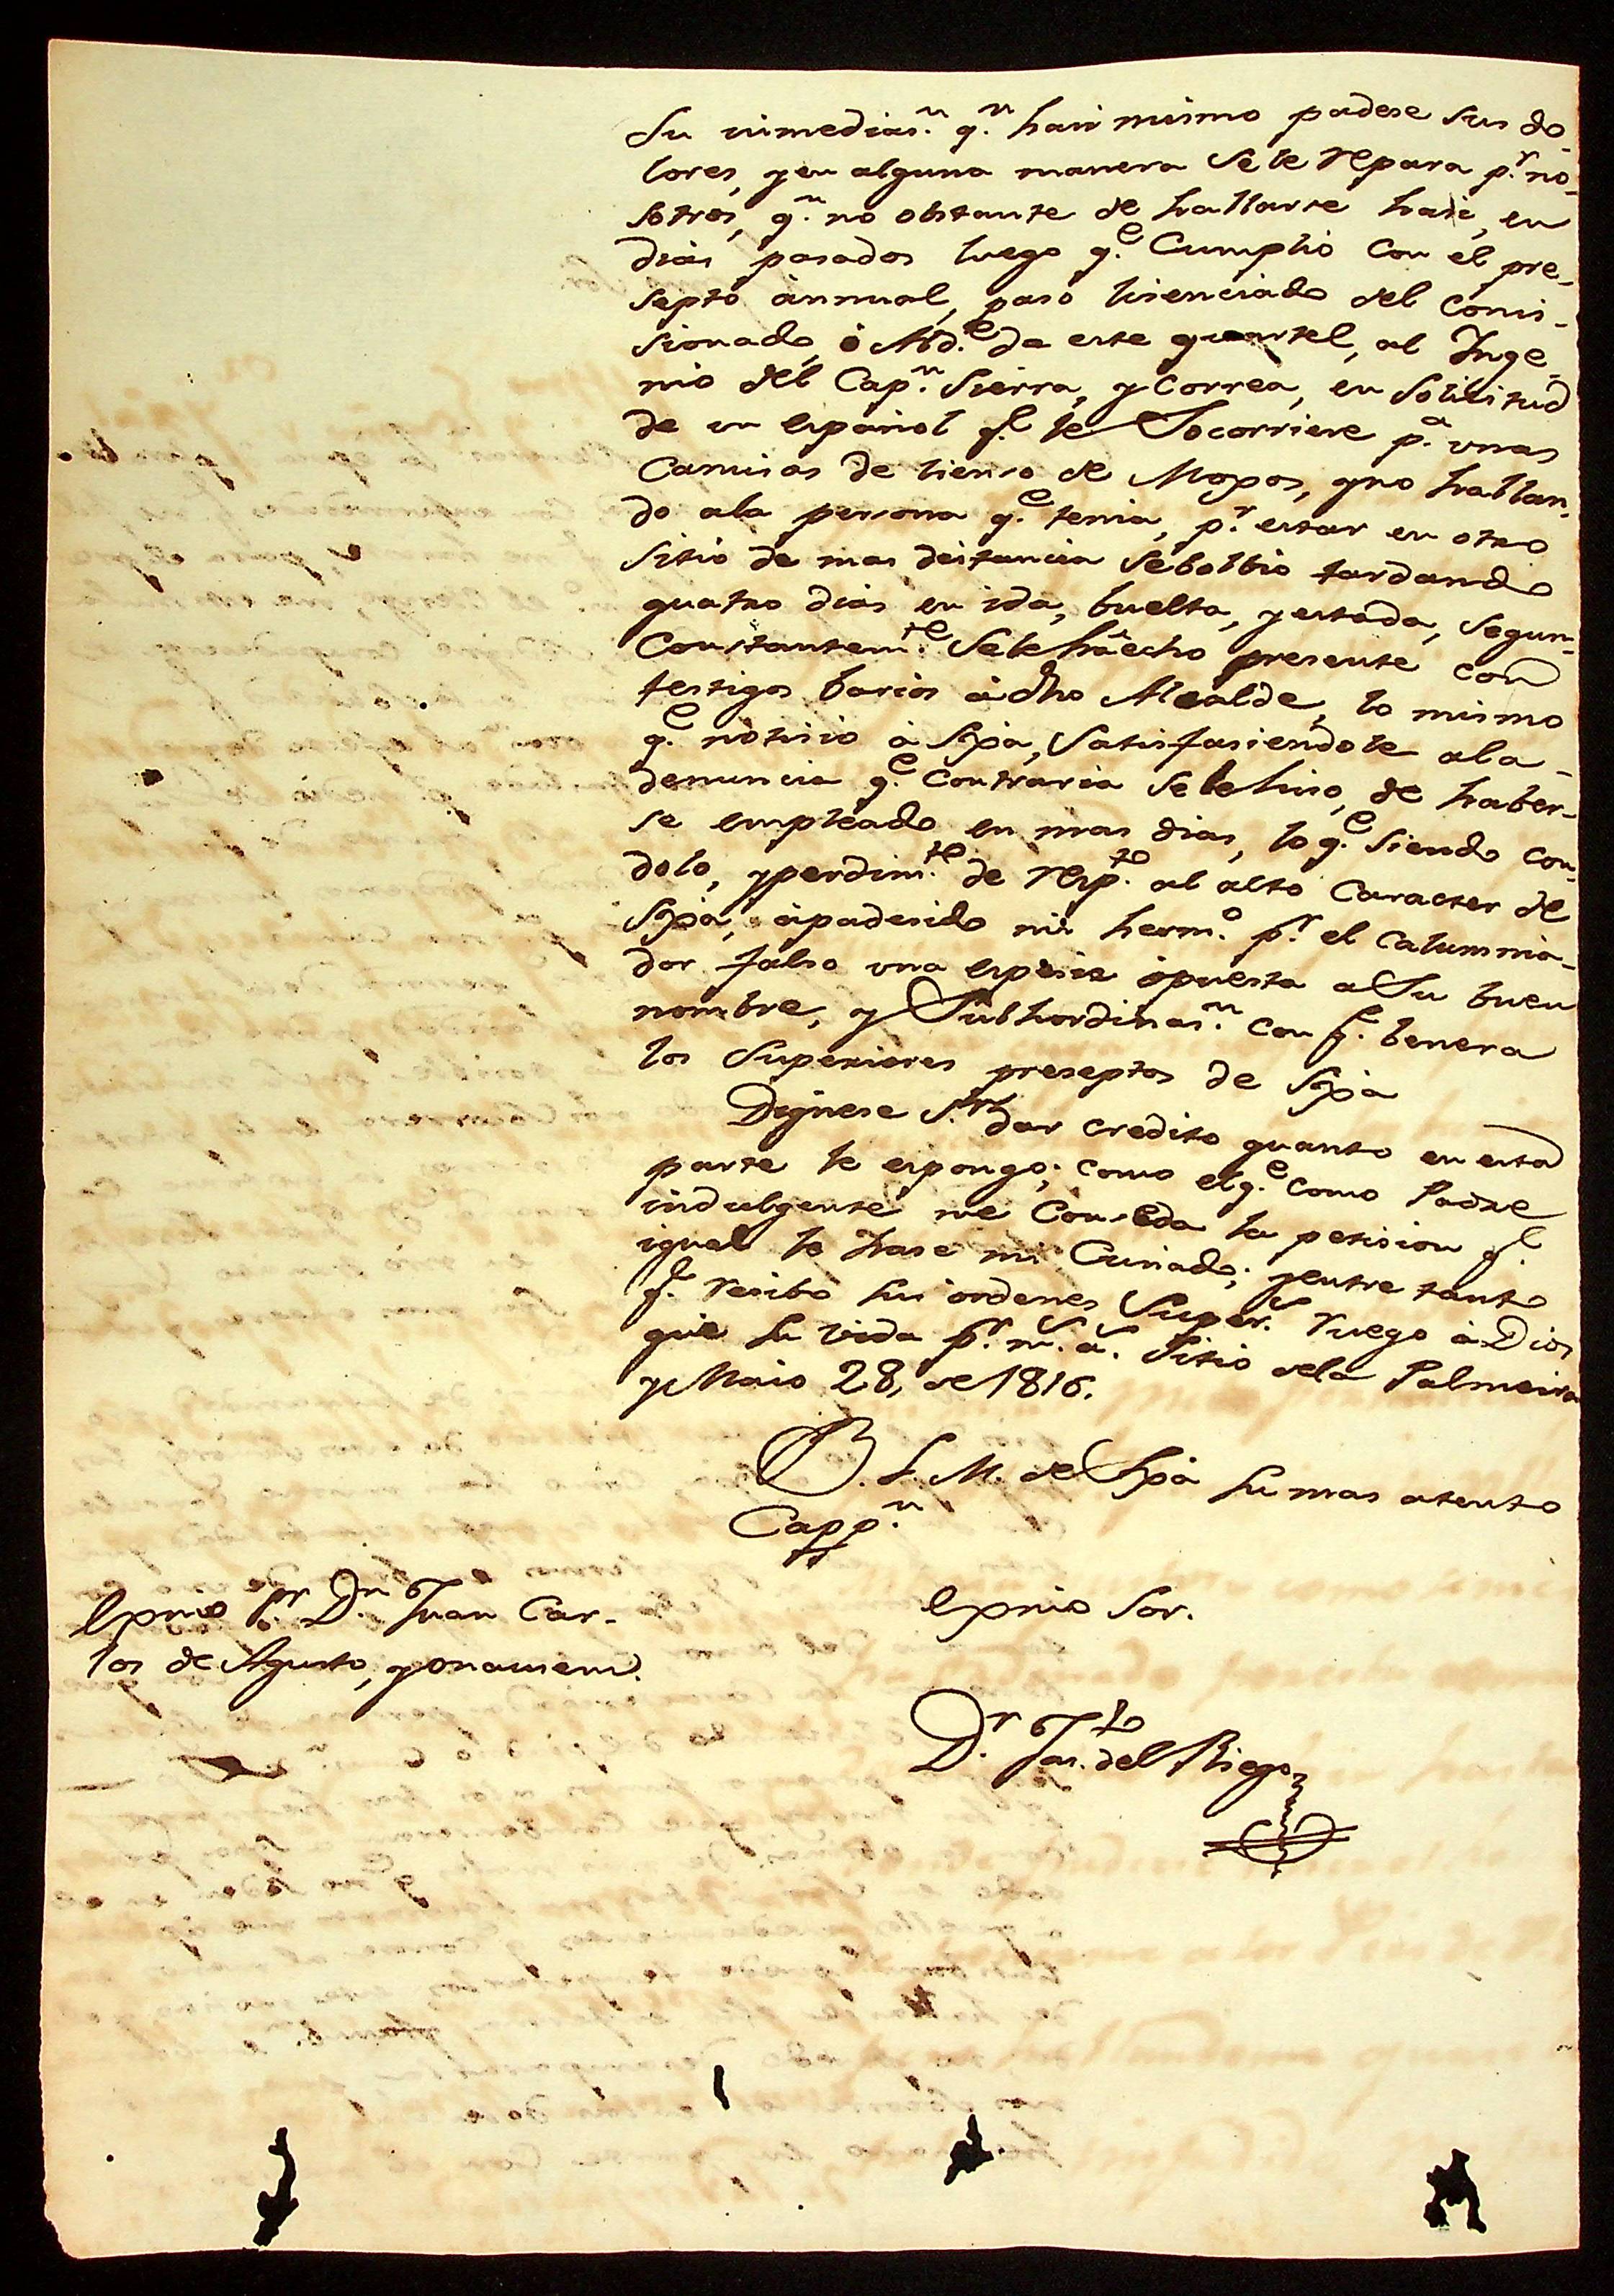 Su inmedias.n q.n hasi mismo padese sus do-
lores, y en alguna manera se le repara p.r no-
sotros, q.n no obstante de hallarse hasi, en
dias pasados luego q.e Cumplió con el pre-
septo annual, pasó lisenciado del Comi-
sionado, ó Alcd.e de este quartel, al Inge-
nio del Cap.n Sierra, y Correa, en Solisitud
de un español q.e le Socorriese p.a unas
Camisas de lienso de Moxos, y no hallan-
do ala persona q.e tenia, p.r estar en otro
Sitio de mas distancia Sebolbió tardando
quatro dias en ida, buelta, y estada, segun
Constantem.te Sele há echo presente con
testigos barios á dho Alcalde, lo mismo
q.e notisió á Sxia, Satisfasiendole ala
denuncia q.e Contraria Sele hiso, de haber-
se empleado en mas dias, lo q.e Siendo con
dolo, y perdim.to de resp.to al alto Caracter de
Sxia, á padesido mi herm.o p.r el Calumnia-
dor falso una espesie opuesta a Su buen
nombre, y Subhordinas.n con q.e benera
los Superiores preseptos de Sxia
Dignese S.or dar credito quanto en esta
parte le espongo; como el q.e como Padre
indulgente me Conseda la petision q.e
igual le hase mi Cuñado; y entre tanto
q.e resibo sus ordenes Super.s ruego á Dios
gũe su vida p.r m.s a.s Sitio dela Palmeira
y Maio 28, de 1816.
B. S. M. de Sxia su mas atento
Capp.n
Exmo Sor.
Exmo S.or D.n Juan Car-
los de Agusto, y
D.r Jas.to del Riego